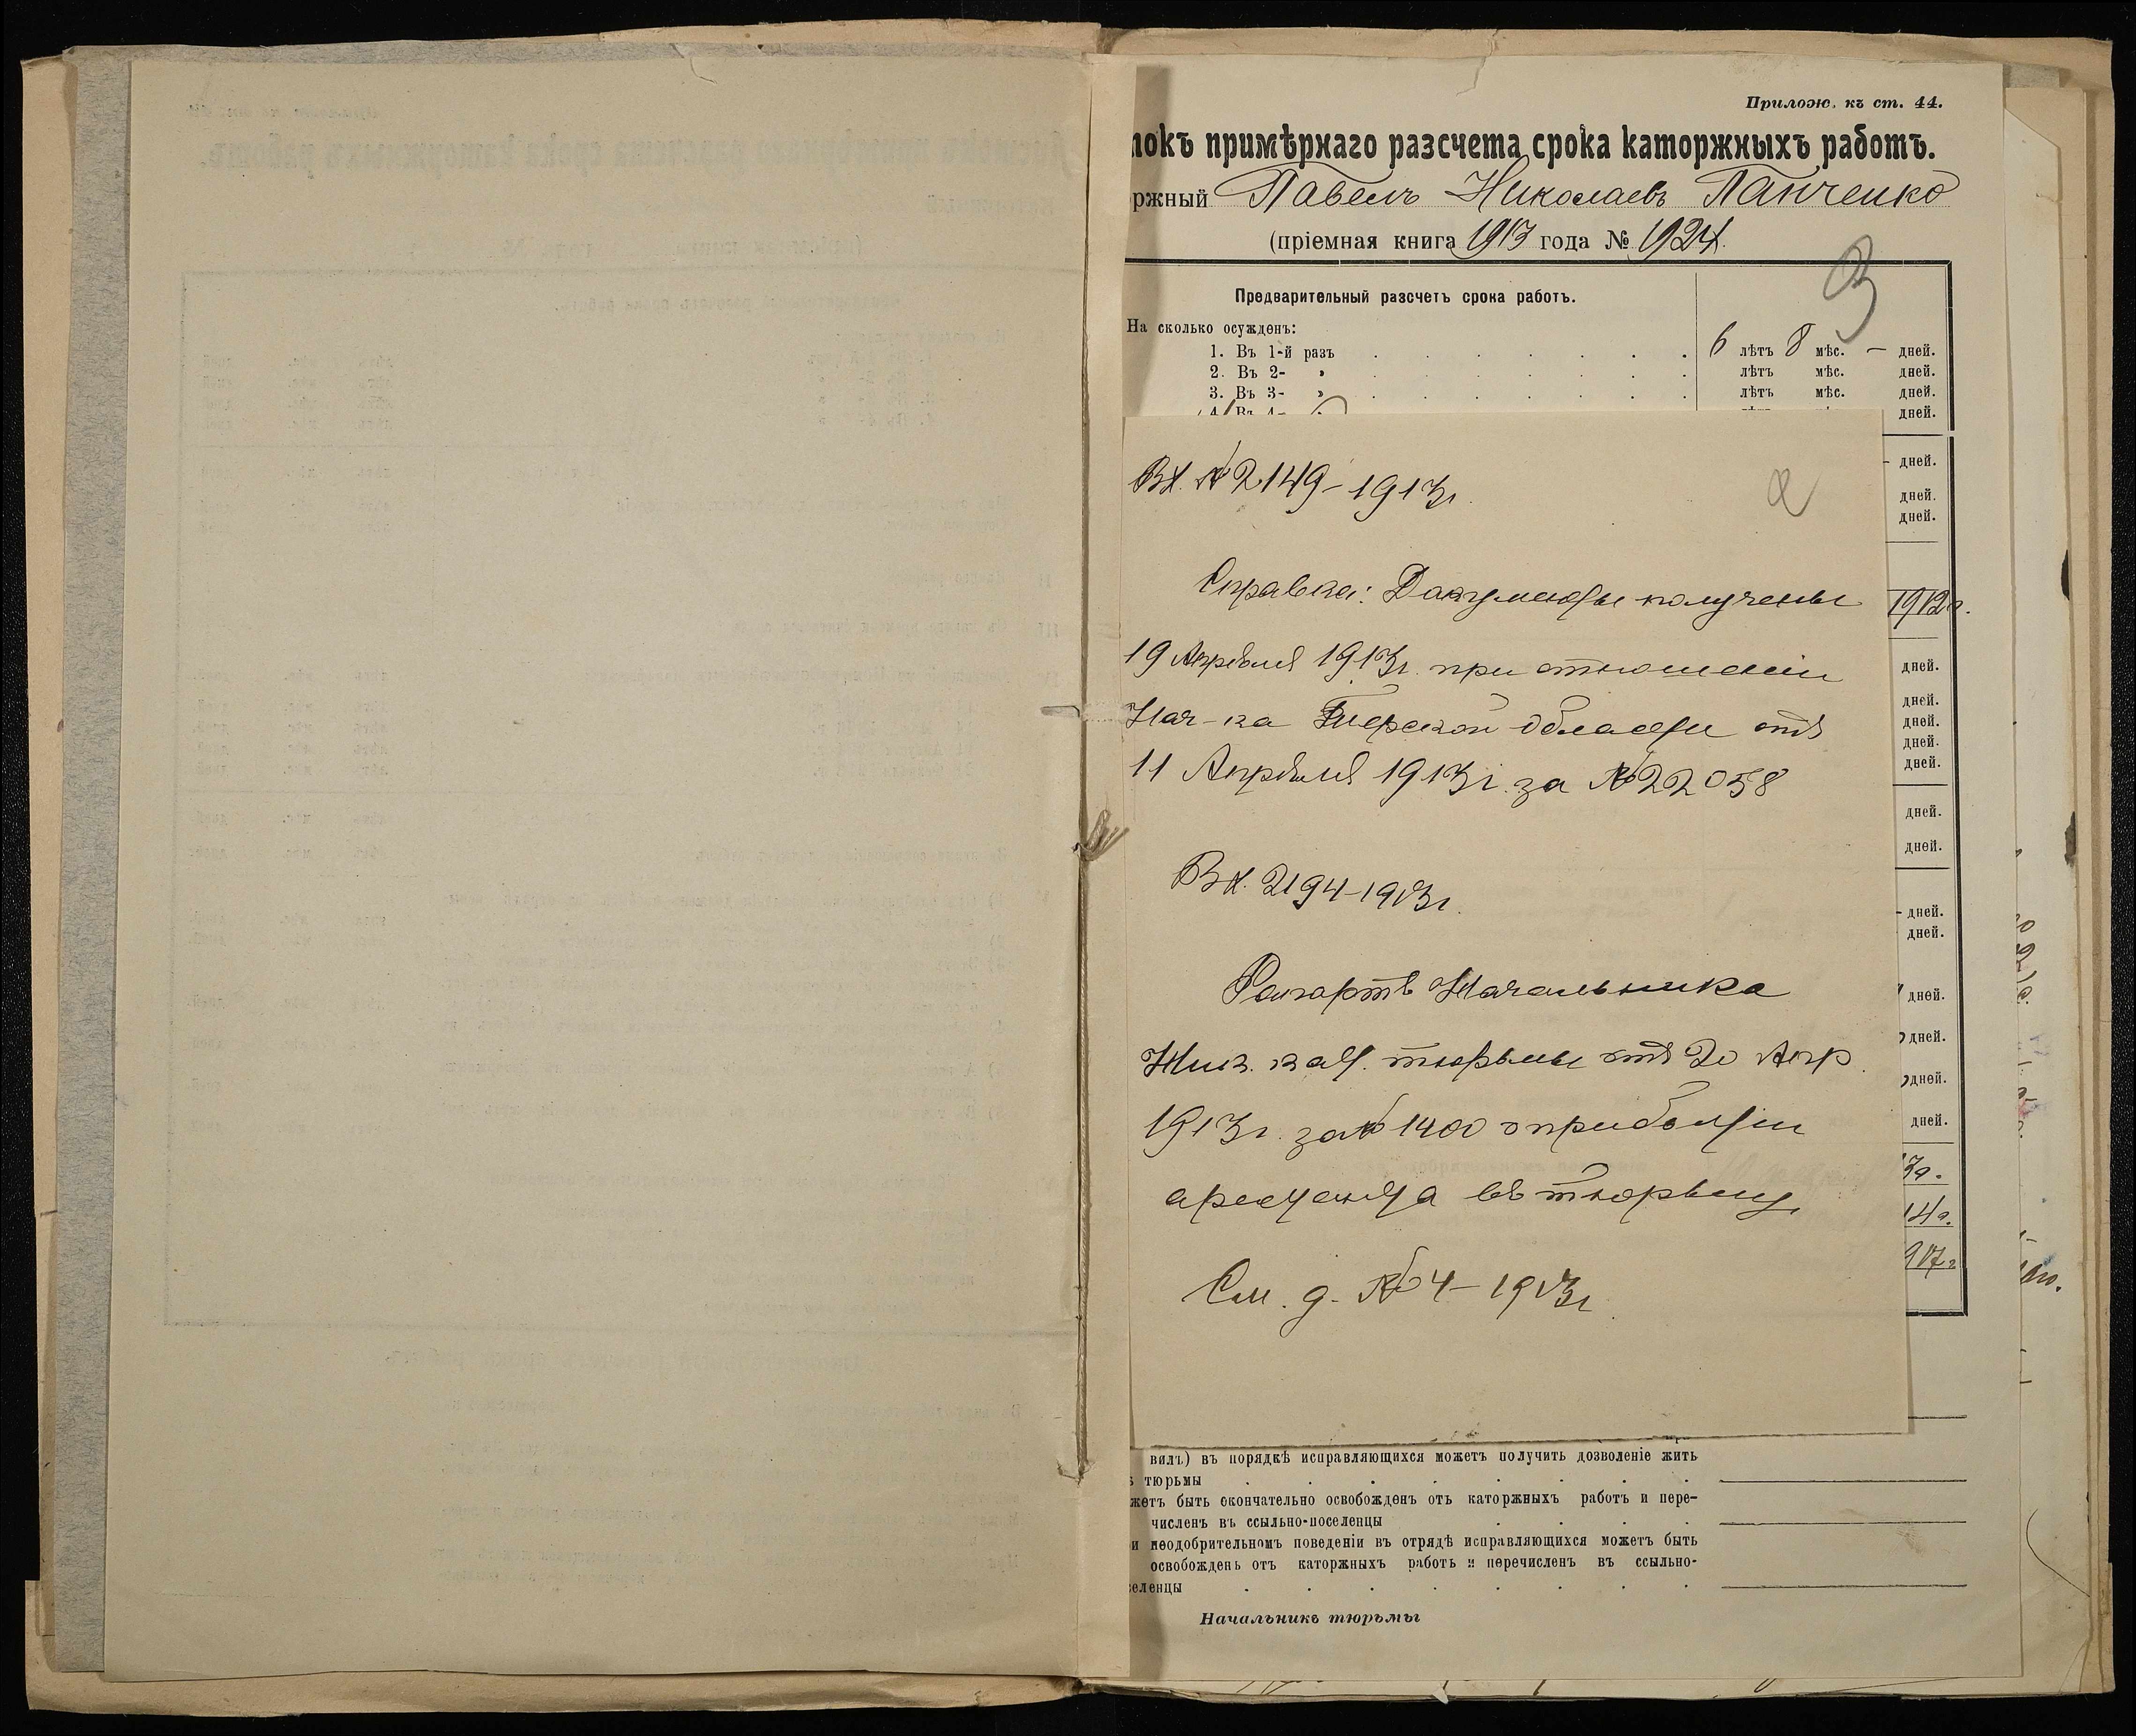 Прилож. къ ст. 44.
токъ примѣрнаго разсчета срока каторжныхъ работъ.
ржный Павелъ Николаевъ Панченко
(пріемная книга 1913 года № 1924.
3
Предварительный разсчетъ срока работъ.
На сколько осужденъ:
1. Въ 1-й разъ 6 лѣтъ 8 мѣс. — дней.
2. Въ 2- » лѣтъ мѣс. дней.
3. Въ 3- » лѣтъ мѣс. дней.
4. Въ 4- дней.
Вх. № 2149-1913г.
2
Справка: Документы получены
19 Апрѣля 1913г. при отношеніи
Нач-ка Терской области отъ
11 Апрѣля 1913г. за № 22058
Вх. 2194-1913г.
Рапортъ Начальника
Ниж. кат. тюрьмы отъ 20 Апр.
1913г. за № 1400 о прибытіи
арестанта въ тюрьму.
См. д. № 4-1913г.
- дней.
дней.
дней.
1912г.
дней.
дней.
дней.
дней.
дней.
дней.
дней.
- дней.
дней.
дней.
дней.
дней.
дней.
3г.
14г.
917г
вилъ) въ порядкѣ исправляющихся можетъ получить дозволеніе жить
ѣ тюрьмы
жетъ быть окончательно освобожденъ отъ каторжныхъ работъ и пере-
численъ въ ссыльно-поселенцы
и неодобрительномъ поведеніи въ отрядѣ исправляющихся можетъ быть
освобожденъ отъ каторжныхъ работъ и перечисленъ въ ссыльно-
селенцы
Начальникъ тюрьмы